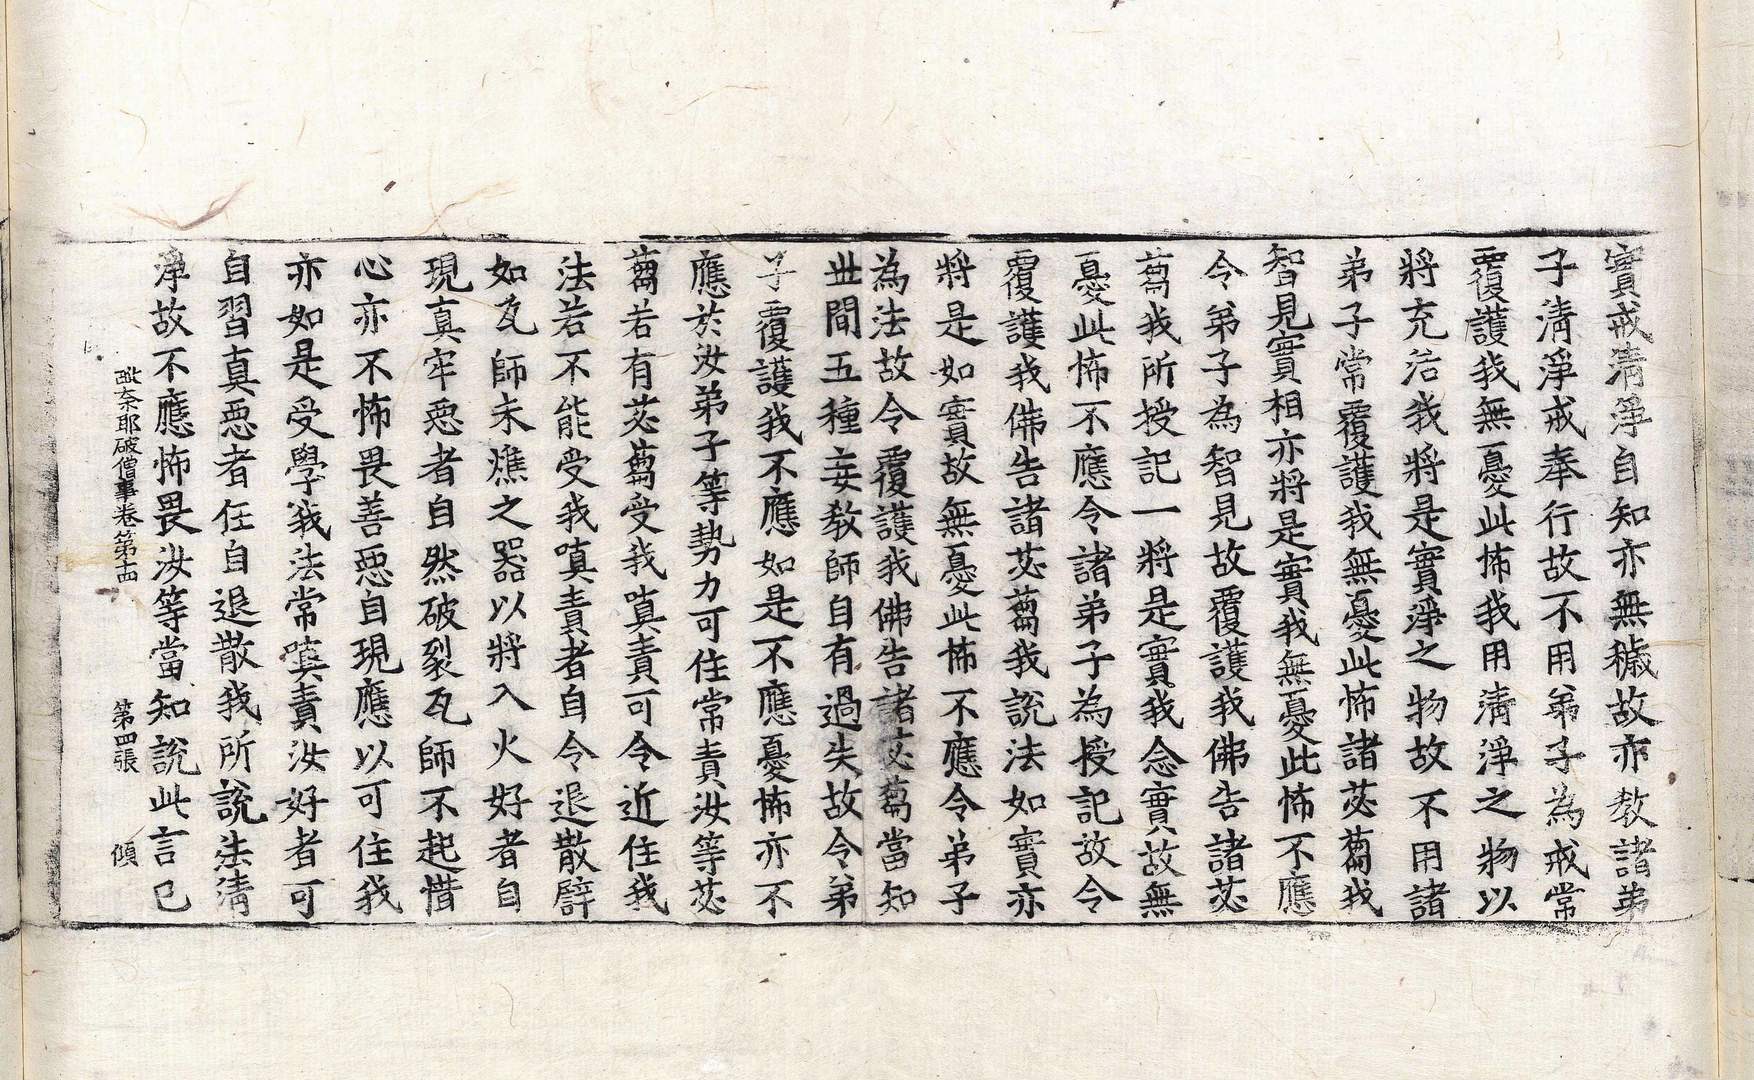 實戒清淨自知亦無穢故亦教諸弟
子清淨戒奉行故不用弟子為戒常
覆護我無憂此怖我用清淨之物以
將充活我將是實淨之物故不用諸
弟子常覆護我無憂此怖諸苾蒭我
智見實相亦將是實我無憂此怖不應
令弟子為智見故覆護我佛告諸苾
蒭我所授記一將是實我念實故無
憂此怖不應令諸弟子為授記故令
覆護我佛告諸苾蒭我說法如實亦
將是如實故無憂此怖不應令弟子
為法故令覆護我佛告諸苾蒭當知
世間五種妄教師自有過失故令弟
子覆護我不應如是不應憂怖亦不
應於汝弟子等勢力可住常責汝等苾
蒭若有苾蒭受我嗔責可令近住我
法若不能受我嗔責者自令退散譬
如瓦師未燋之器以將入火好者自
現真牢惡者自然破裂瓦師不起惜
心亦不怖畏善惡自現應以可住我
亦如是受學我法常嗔責汝好者可
自習真惡者任自退散我所說法清
淨故不應怖畏汝等當知說此言已
毗奈耶破僧事卷第十四 第四張 傾